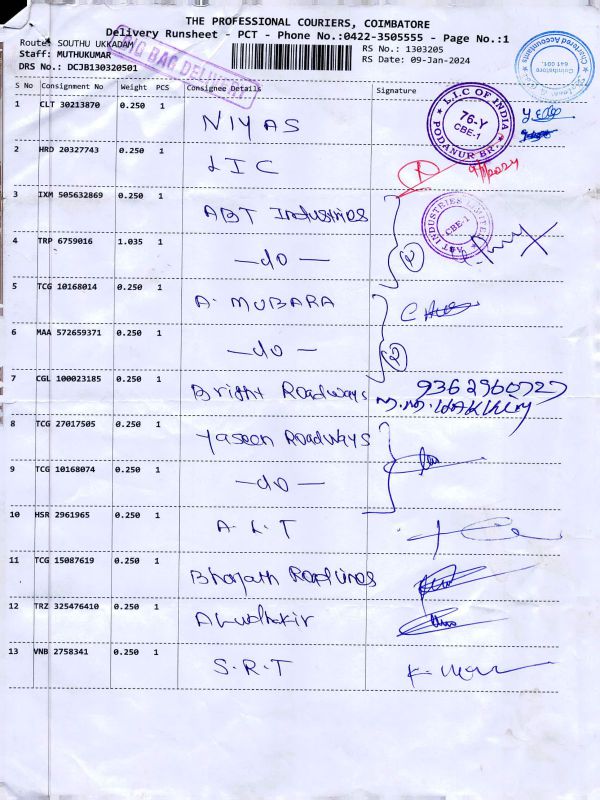 THE PROFESSIONAL COURIERS, COIMBATORE
Delivery Runsheet - PCT - Phone No.:0422-3505555 - Page No.:1
Route: SOUTHU UKKADAM
Staff: MUTHUKUMAR
RS No.: 1303205
DRS No.: DCJB130320501
RS Date: 09-Jan-2024
BIG BAG DELIVERY
Chartered Accountants
Coimbatore
641 001.
S No Consignment No Weight PCS Consignee Details Signature
1 CLT 30213870 0.250 1 NIYAS
L.I.C OF INDIA
76-Y
CBE-1
PODANUR BR.
2 HRD 20327743 0.250 1 LIC
3 IXM 505632869 0.250 1 ABT Industries
INDUSTRIES LIMITED
CBE-1
4 TRP 6759016 1.035 1 -do- 2
5 TCG 10168014 0.250 1 A. MUBARA
6 MAA 572659371 0.250 1 -do- 2
7 CGL 100023185 0.250 1 Bright Roadways 9362960727
8 TCG 27017505 0.250 1 Yaseen Roadways
9 TCG 10168074 0.250 1 -do-
10 HSR 2961965 0.250 1 A.L.T
11 TCG 15087619 0.250 1 Bharath Roadlines
12 TRZ 325476410 0.250 1
13 VNB 2758341 0.250 1 S.R.T